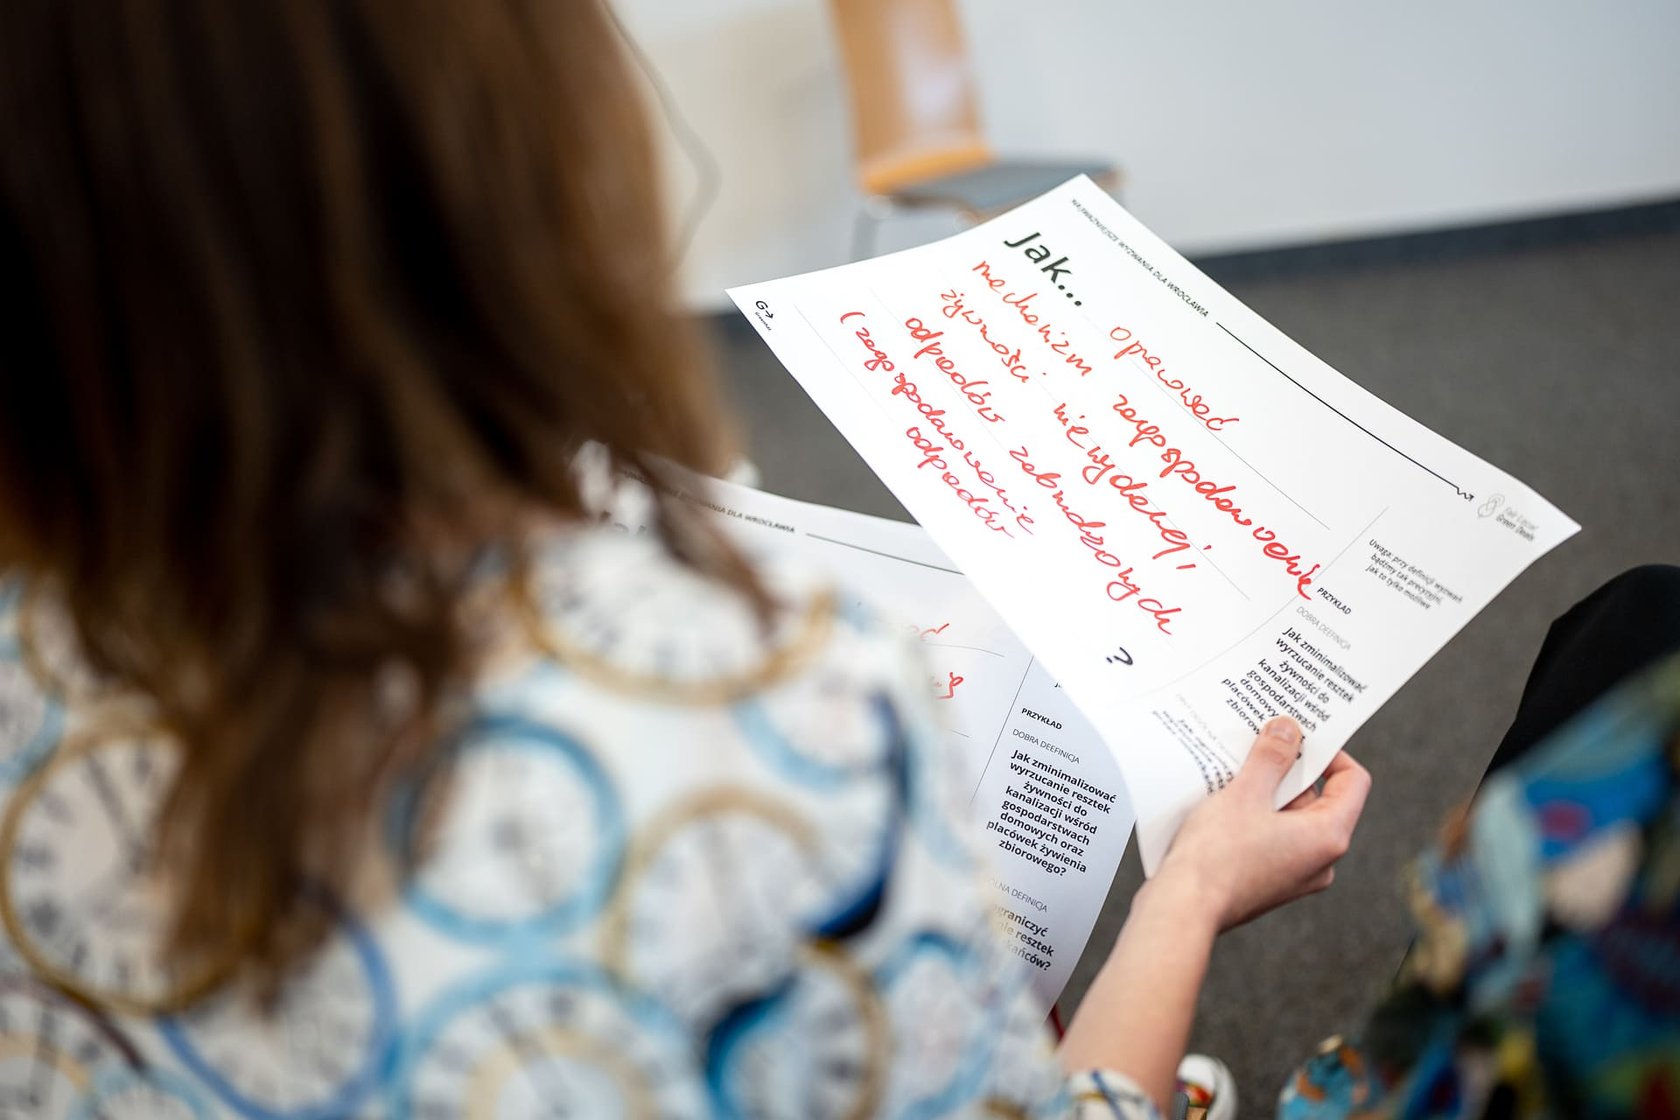 NAJWAŻNIEJSZE WYZWANIA DLA WROCŁAWIA
Jak... opracować
mechanizm zagospodarowanie
żywności niewydanej,
odpadów zabrudzonych
(zagospodarowanie
odpadów
?
Green Deals
Uwaga: przy definicji wyzwań
bądźmy tak precyzyjni,
jak to tylko możliwe
PRZYKŁAD
DOBRA DEEFINICJA
Jak zminimalizować
wyrzucanie resztek
żywności do
kanalizacji wśród
gospodarstwach
domowych
placówek
zbiorow
DLA WROCŁAWIA
PRZYKŁAD
DOBRA DEEFINICJA
Jak zminimalizować
wyrzucanie resztek
żywności do
kanalizacji wśród
gospodarstwach
domowych oraz
placówek żywienia
zbiorowego?
OLNA DEFINICJA
graniczyć
nie resztek
kańców?